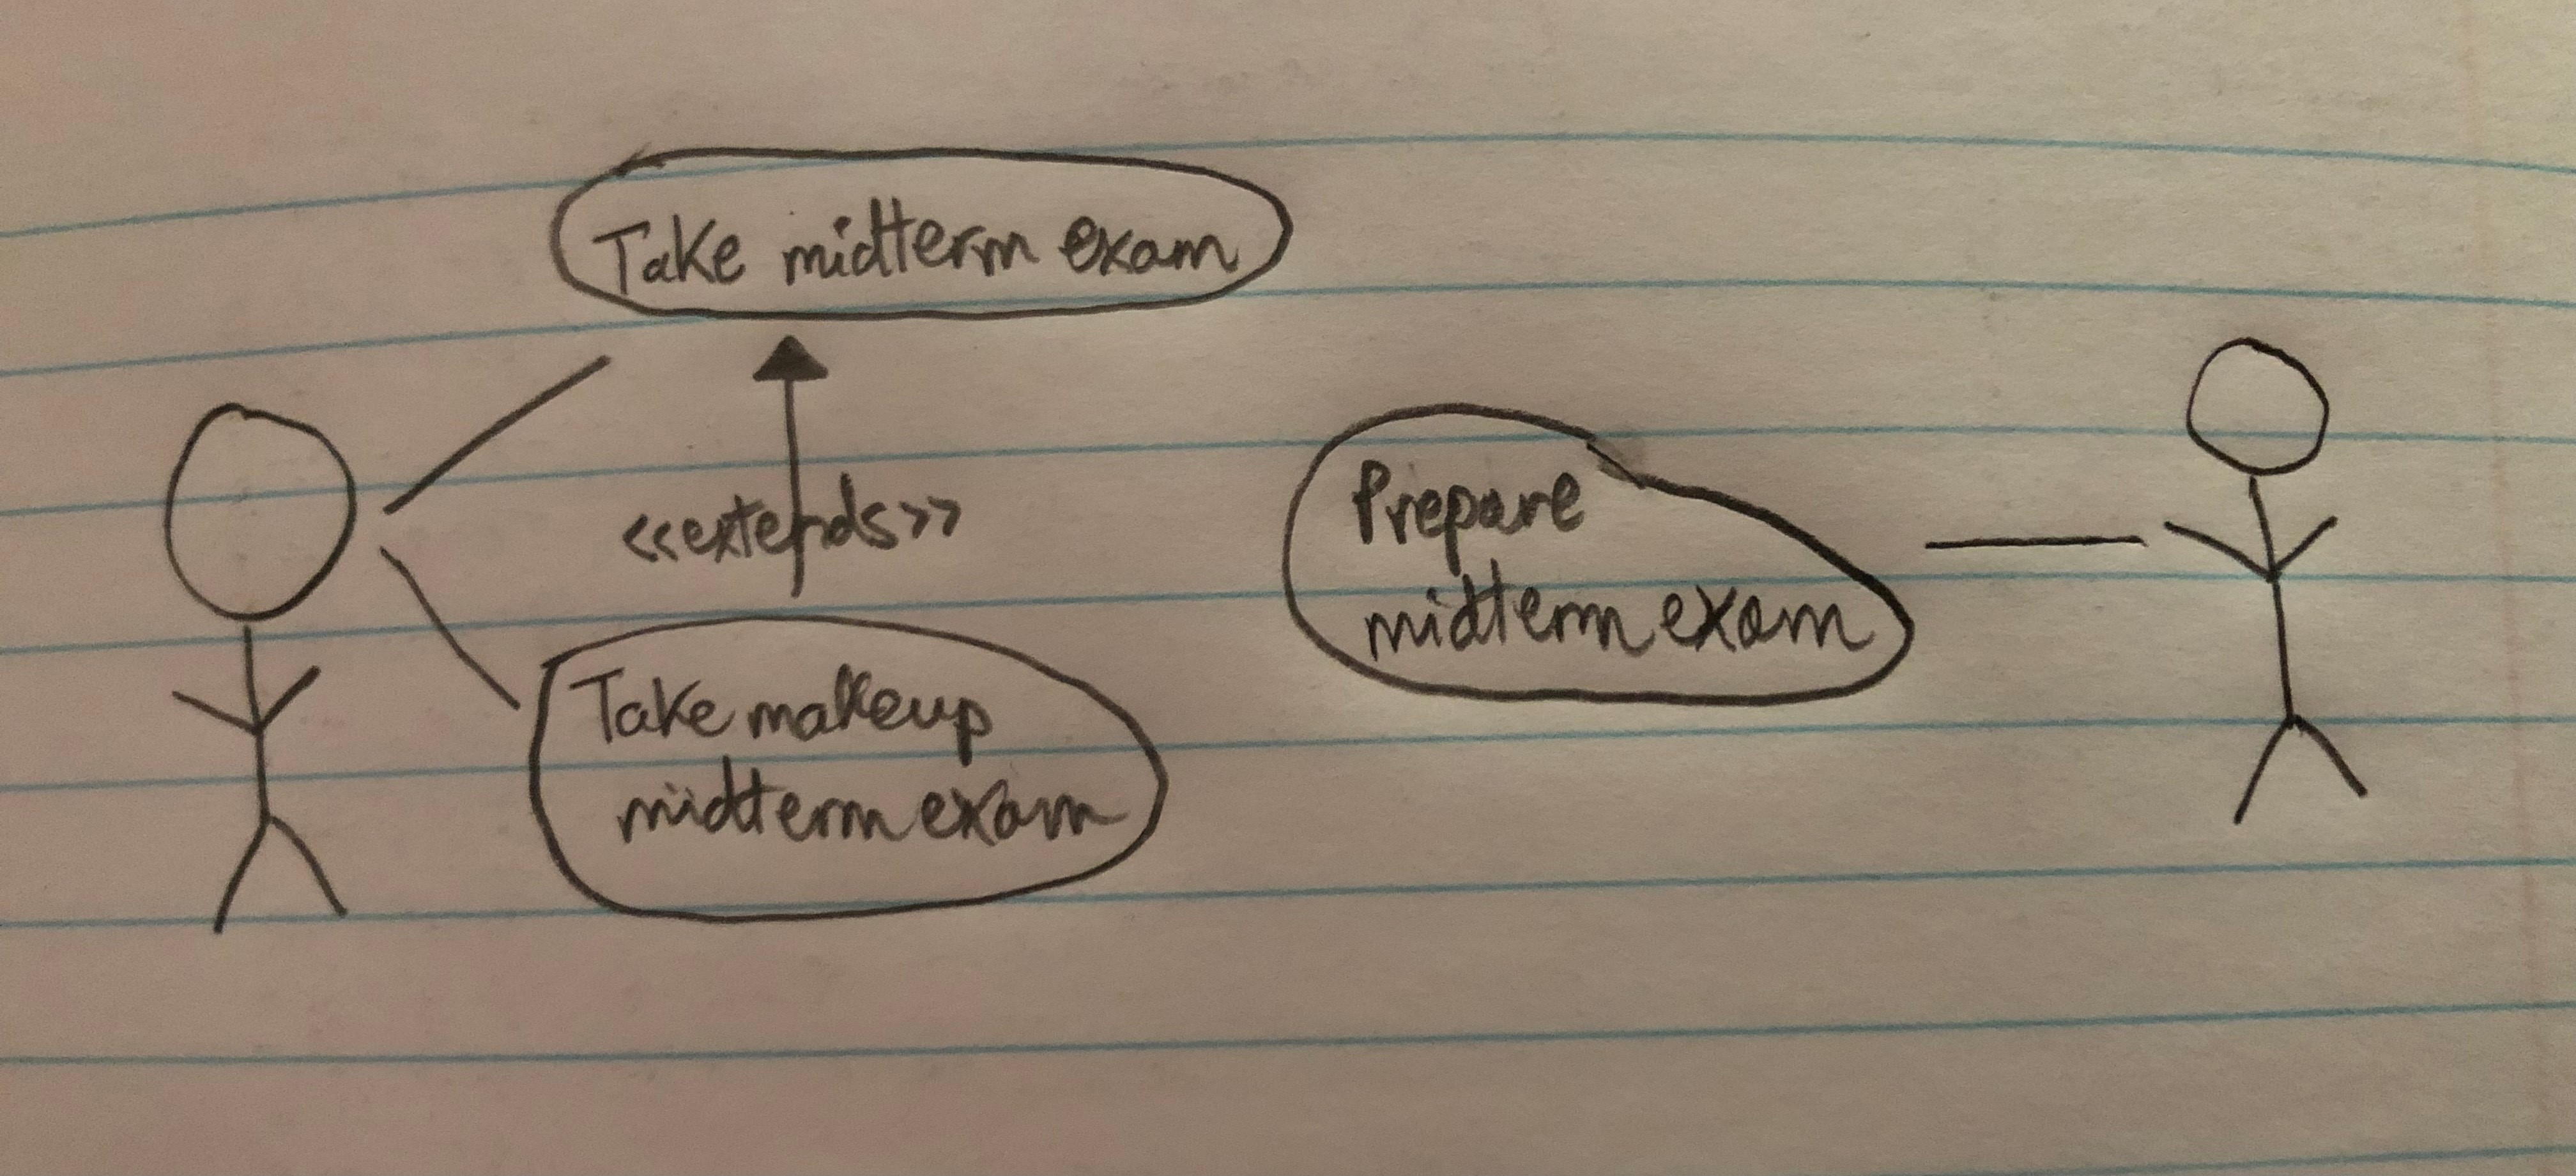 Take midterm exam
<<extends>>
Take makeup
midterm exam
Prepare
midterm exam